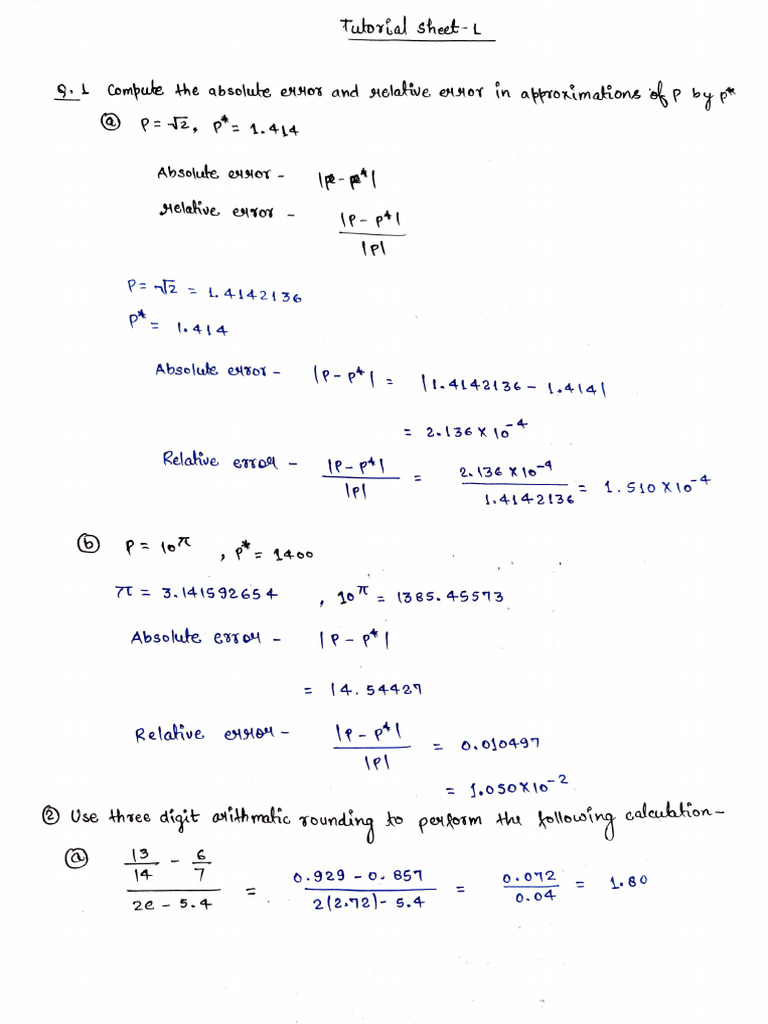 Tutorial Sheet-1
Q.1 Compute the absolute error and relative error in approximations of P by P*
(a) P = √2, P* = 1.414
Absolute error - |P - P*|
relative error - |P - P*| / |P|
P = √2 = 1.4142136
P* = 1.414
Absolute error - |P - P*| = |1.4142136 - 1.414|
= 2.136 × 10^-4
Relative error - |P - P*| / |P| = 2.136 × 10^-4 / 1.4142136 = 1.510 × 10^-4
(b) P = 10^π, P* = 1400
π = 3.141592654, 10^π = 1385.45573
Absolute error - |P - P*|
= 14.54427
Relative error - |P - P*| / |P| = 0.010497
= 1.050 × 10^-2
(2) Use three digit arithmatic rounding to perform the following calculation-
(a) (13/14 - 6/7) / (2e - 5.4) = (0.929 - 0.857) / (2(2.72) - 5.4) = 0.072 / 0.04 = 1.80